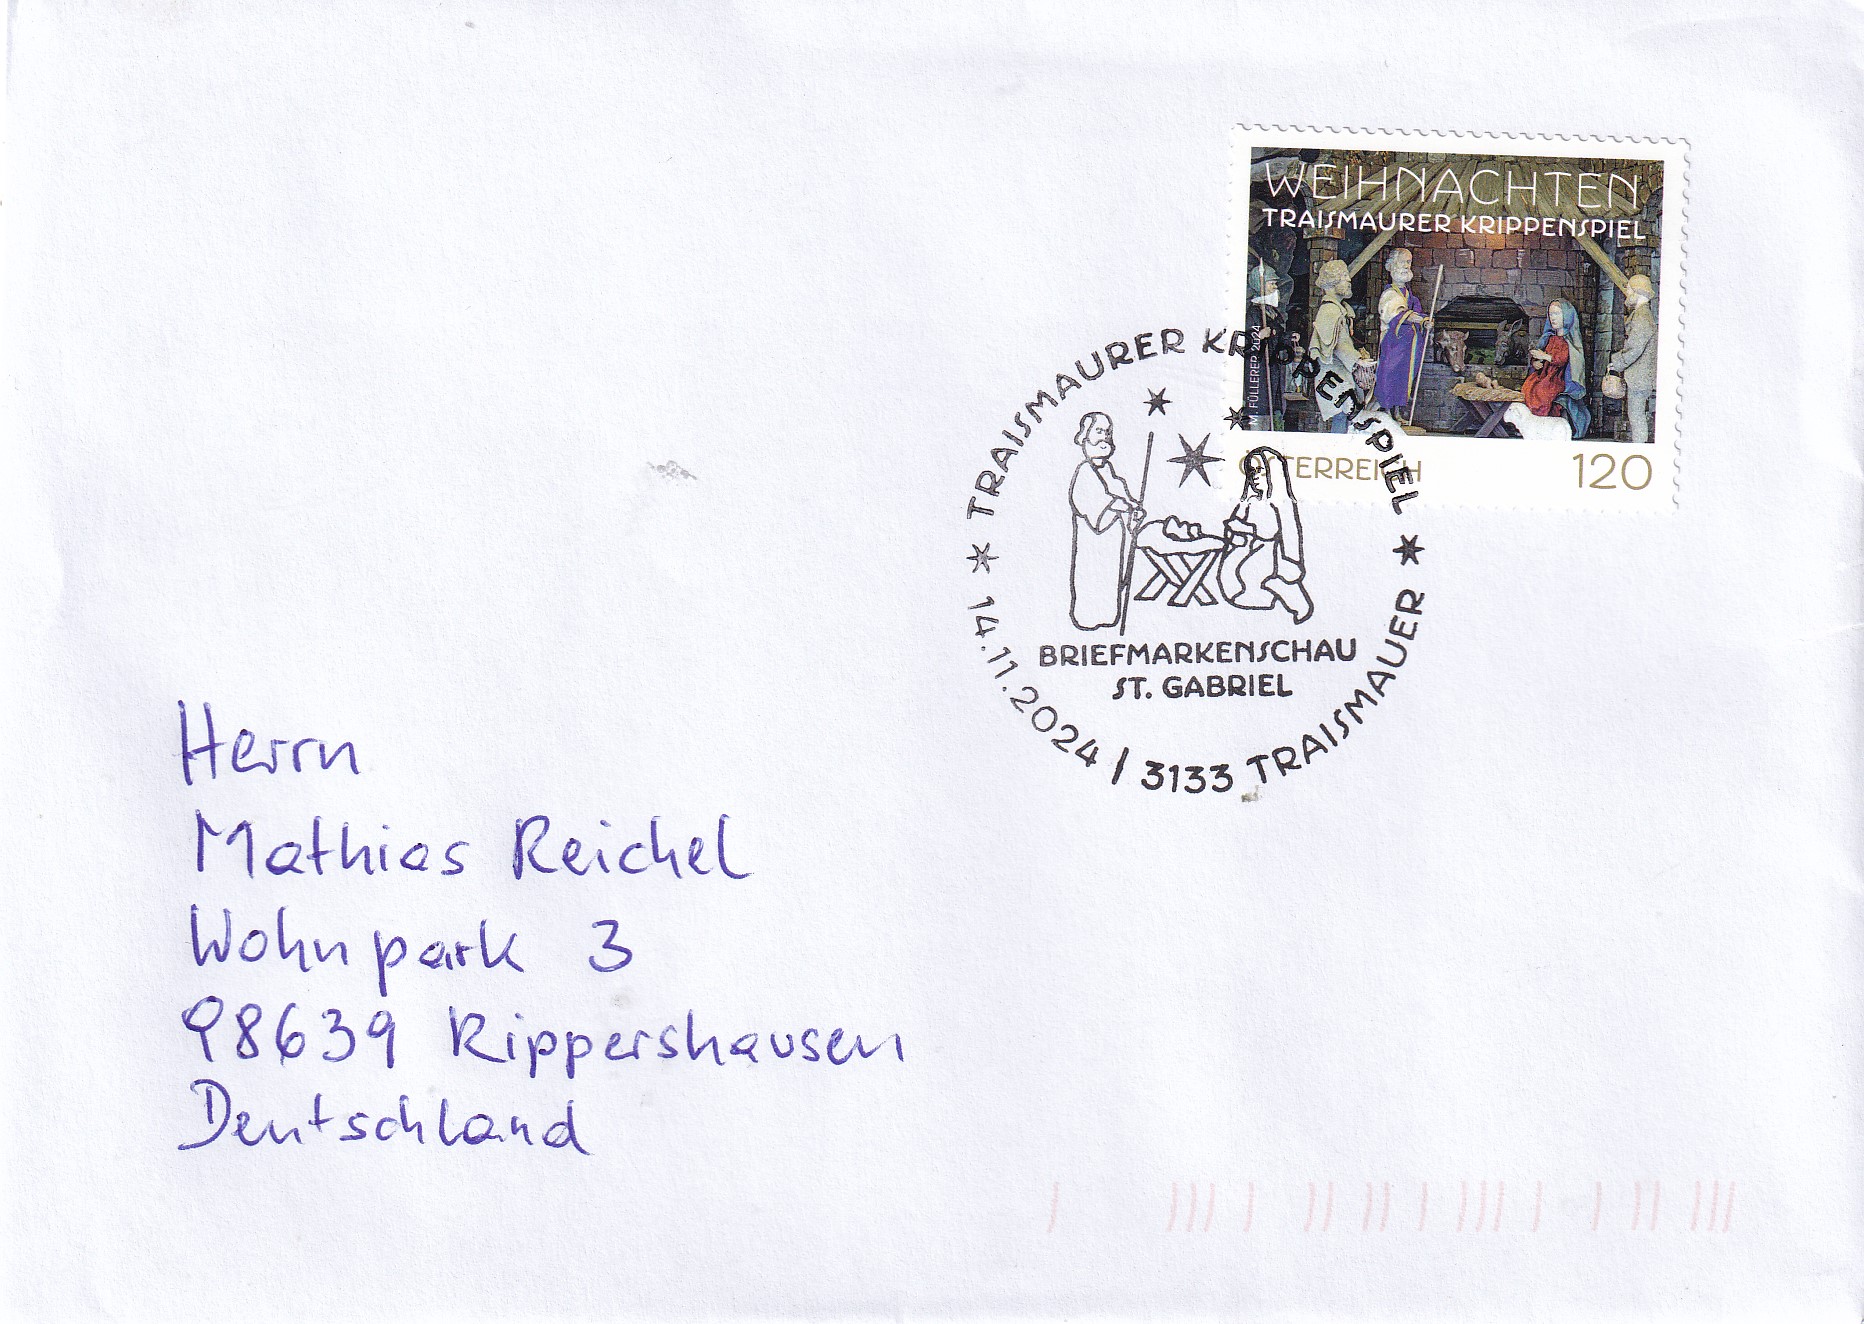 WEIHNACHTEN
TRAISMAURER KRIPPENSPIEL
M. FÜLLERER 2024
ÖSTERREICH 120
TRAISMAURER KRIPPENSPIEL
BRIEFMARKENSCHAU
ST. GABRIEL
14.11.2024 / 3133 TRAISMAUER
Herrn
Mathias Reichel
Wohnpark 3
98639 Rippershausen
Deutschland